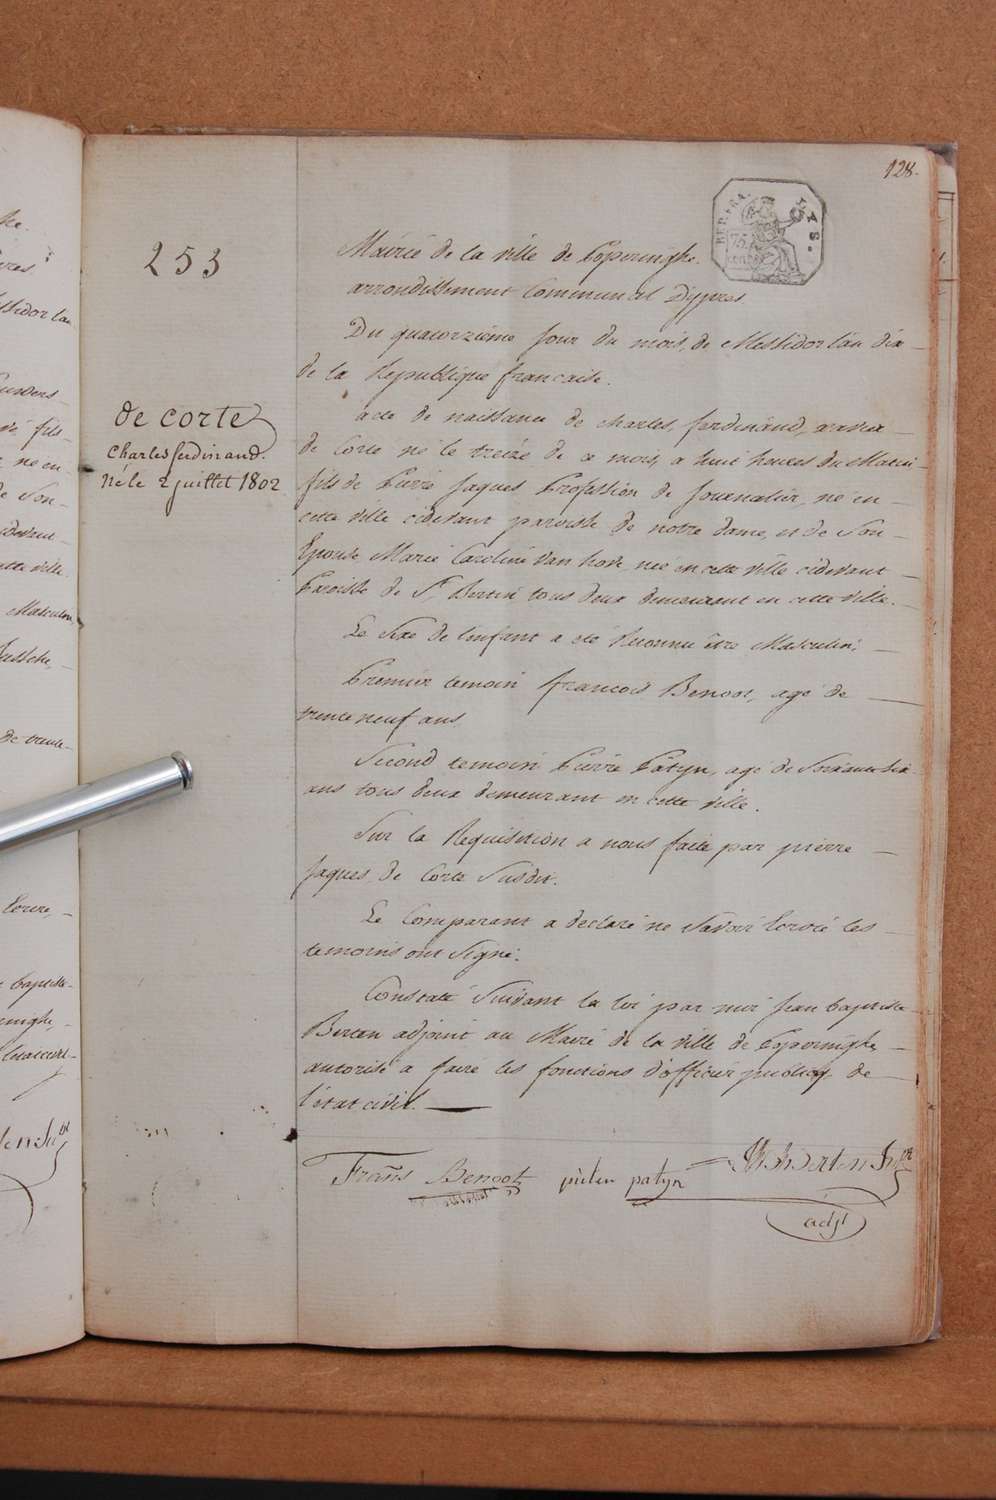 128.
REP. FRA.
75.
CENT
253
Mairie de la ville de Poperinghe.
arrondissement Communal Dypres
Du quatorzieme jour du mois de Messidor l'an dix
de la Republique francaise.
acte de naissance de charles, ferdinand, xavier
de Corte né le treize de ce mois, a huit heures du Matin
fils de Pierre Jaques Profession de Journalier, né en
cette ville cidevant paroisse de notre dame, et de Son
Epouse Marie Caroline Van hove née en cette ville cidevant
Paroisse de St. Bertin tous deux demeurant en cette ville.
Le Sexe de l'enfant a eté Reconnu être Masculin;
Premier temoin francois Benoot, agé de
trente neuf ans
Second temoin Pierre Patyn, agé de Soixante Six
ans tous deux demeurant en cette ville.
Sur la Requisition a nous faite par pierre
Jaques de Corte Susdit.
Le Comparant a declaré ne Savoir Ecrire les
temoins ont Signé.
Constaté Suivant la loi par moi Jean baptiste
Berten adjoint au Maire de la ville de Poperinghe,
autorisé a faire les fonctions d'officier public de
l'état civil.
de corte
charles ferdinand.
né le 2 juillet 1802
Frans Benoot
pieter patyn
Berten
adjt